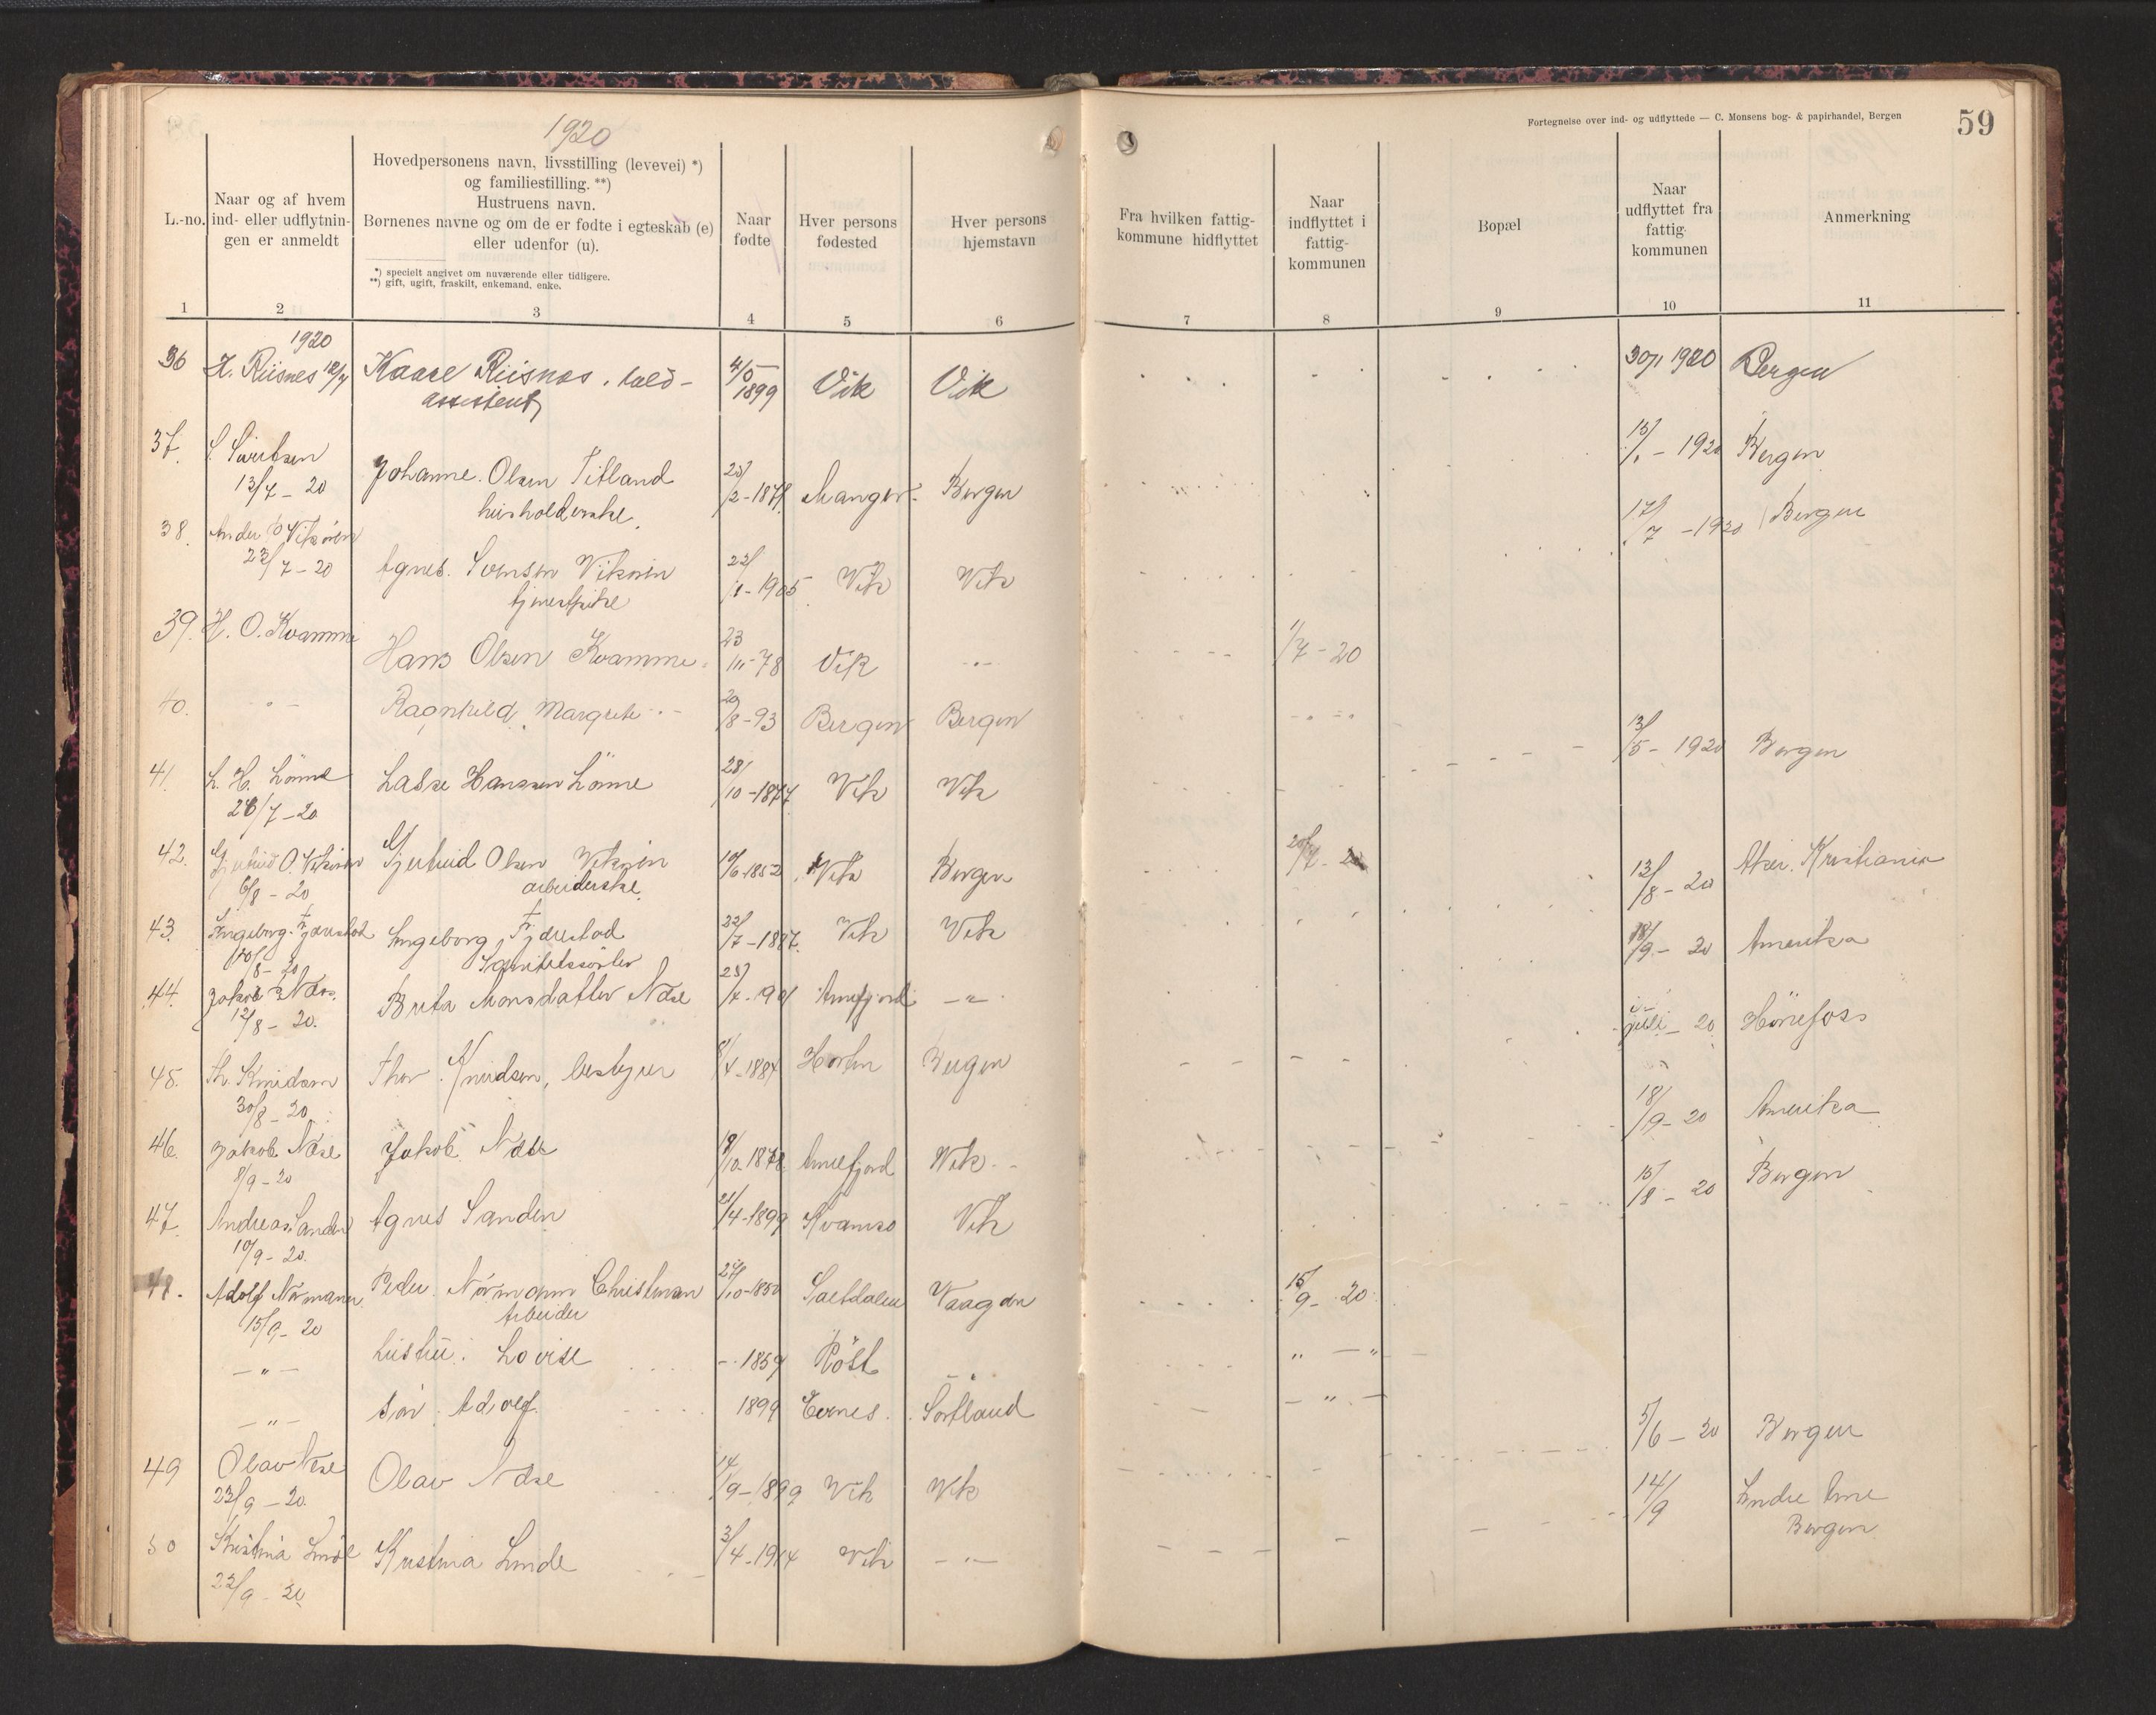 1920
Fortegnelse over ind- og udflyttede — C. Monsens bog- & papirhandel, Bergen
59
L.-no.
Naar og af hvem
ind- eller udflytnin-
gen er anmeldt
Hovedpersonens navn, livsstilling (levevei) *)
og familiestilling. **)
Hustruens navn.
Børnenes navne og om de er fødte i egteskab (e)
eller udenfor (u).
*) specielt angivet om nuværende eller tidligere.
**) gift, ugift, fraskilt, enkemand, enke.
Naar
fødte
Hver persons
fødested
Hver persons
hjemstavn
Fra hvilken fattig-
kommune hidflyttet
Naar
indflyttet i
fattig-
kommunen
Bopæl
Naar
udflyttet fra
fattig-
kommunen
Anmerkning
1 2 3 4 5 6 7 8 9 10 11
1920
36 Riisnes 12/4 Kaare Riisnes 4/5 1899 Vik Vik 30/1 1920 Bergen
assistent
37. 13/7 - 20 Johanne Olsen Titland Manger Bergen 1920 Bergen
husholderske
38. Vikören 23/7 - 20 Agnes Svensen Vikören 1905 Vik Vik 17/7 - 1920 Bergen
39. H. O. Kvamme Hans Olsen Kvamme 23 78 Vik - " - 1/7 - 20
40. - " - Ragnhild Margrete - " - 29/8 - 93 Bergen Bergen - " -
41. L. H. Lönne Lasse Hanssen Lönne 28/10 - 1877 Vik Vik 13/5 - 1920 Bergen
28/7 - 20
42. O. Vikören Gjertrud Olsen Vikören 1852 Vik Bergen Aker. Kristiania
6/8 - 20 arbeiderske 13/8 - 20
43. Ingeborg Fjærestad Ingeborg Fjærestad 22/7 - 1887 Vik Vik 18/9 - 20 Amerika
8 - 20
44. Jakob Næse Brita Monsdatter Næse 1901 Arnefjord - " - juli - 20 Hönefoss
12/8 - 20.
45. Th. Knudsen Thor Knudsen, bestyrer 8/4 - 1884 Horten Bergen
30/8 - 20 18/9 - 20 Amerika
46. Jakob Næse Jakob Næse 1878 Arnefjord Vik
8/9 - 20 15/8 - 20 Bergen
47. Andreas Sanden Agnes Sanden 21/4 - 1899 Kvamsø Vik
10/9 - 20.
48. Adolf Normann Peder Normann Christensen 27/10 - 1850 Saltdalen Vaagan 15/9 - 20
15/9 - 20 Arbeider
- " - hustru: Lovise - 1859 Röst - " -
- " - sön: Adolf 1899 Evenes Sortland - " -
5/6 - 20 Bergen
49 Olav Næse Olav Næse 14/9 - 1899 Vik Vik
23/9 - 20. 14/9 Indre Arne
Bergen
50 Kristina Linde Kristina Linde 3/4 - 1914 Vik - " -
22/9 - 20